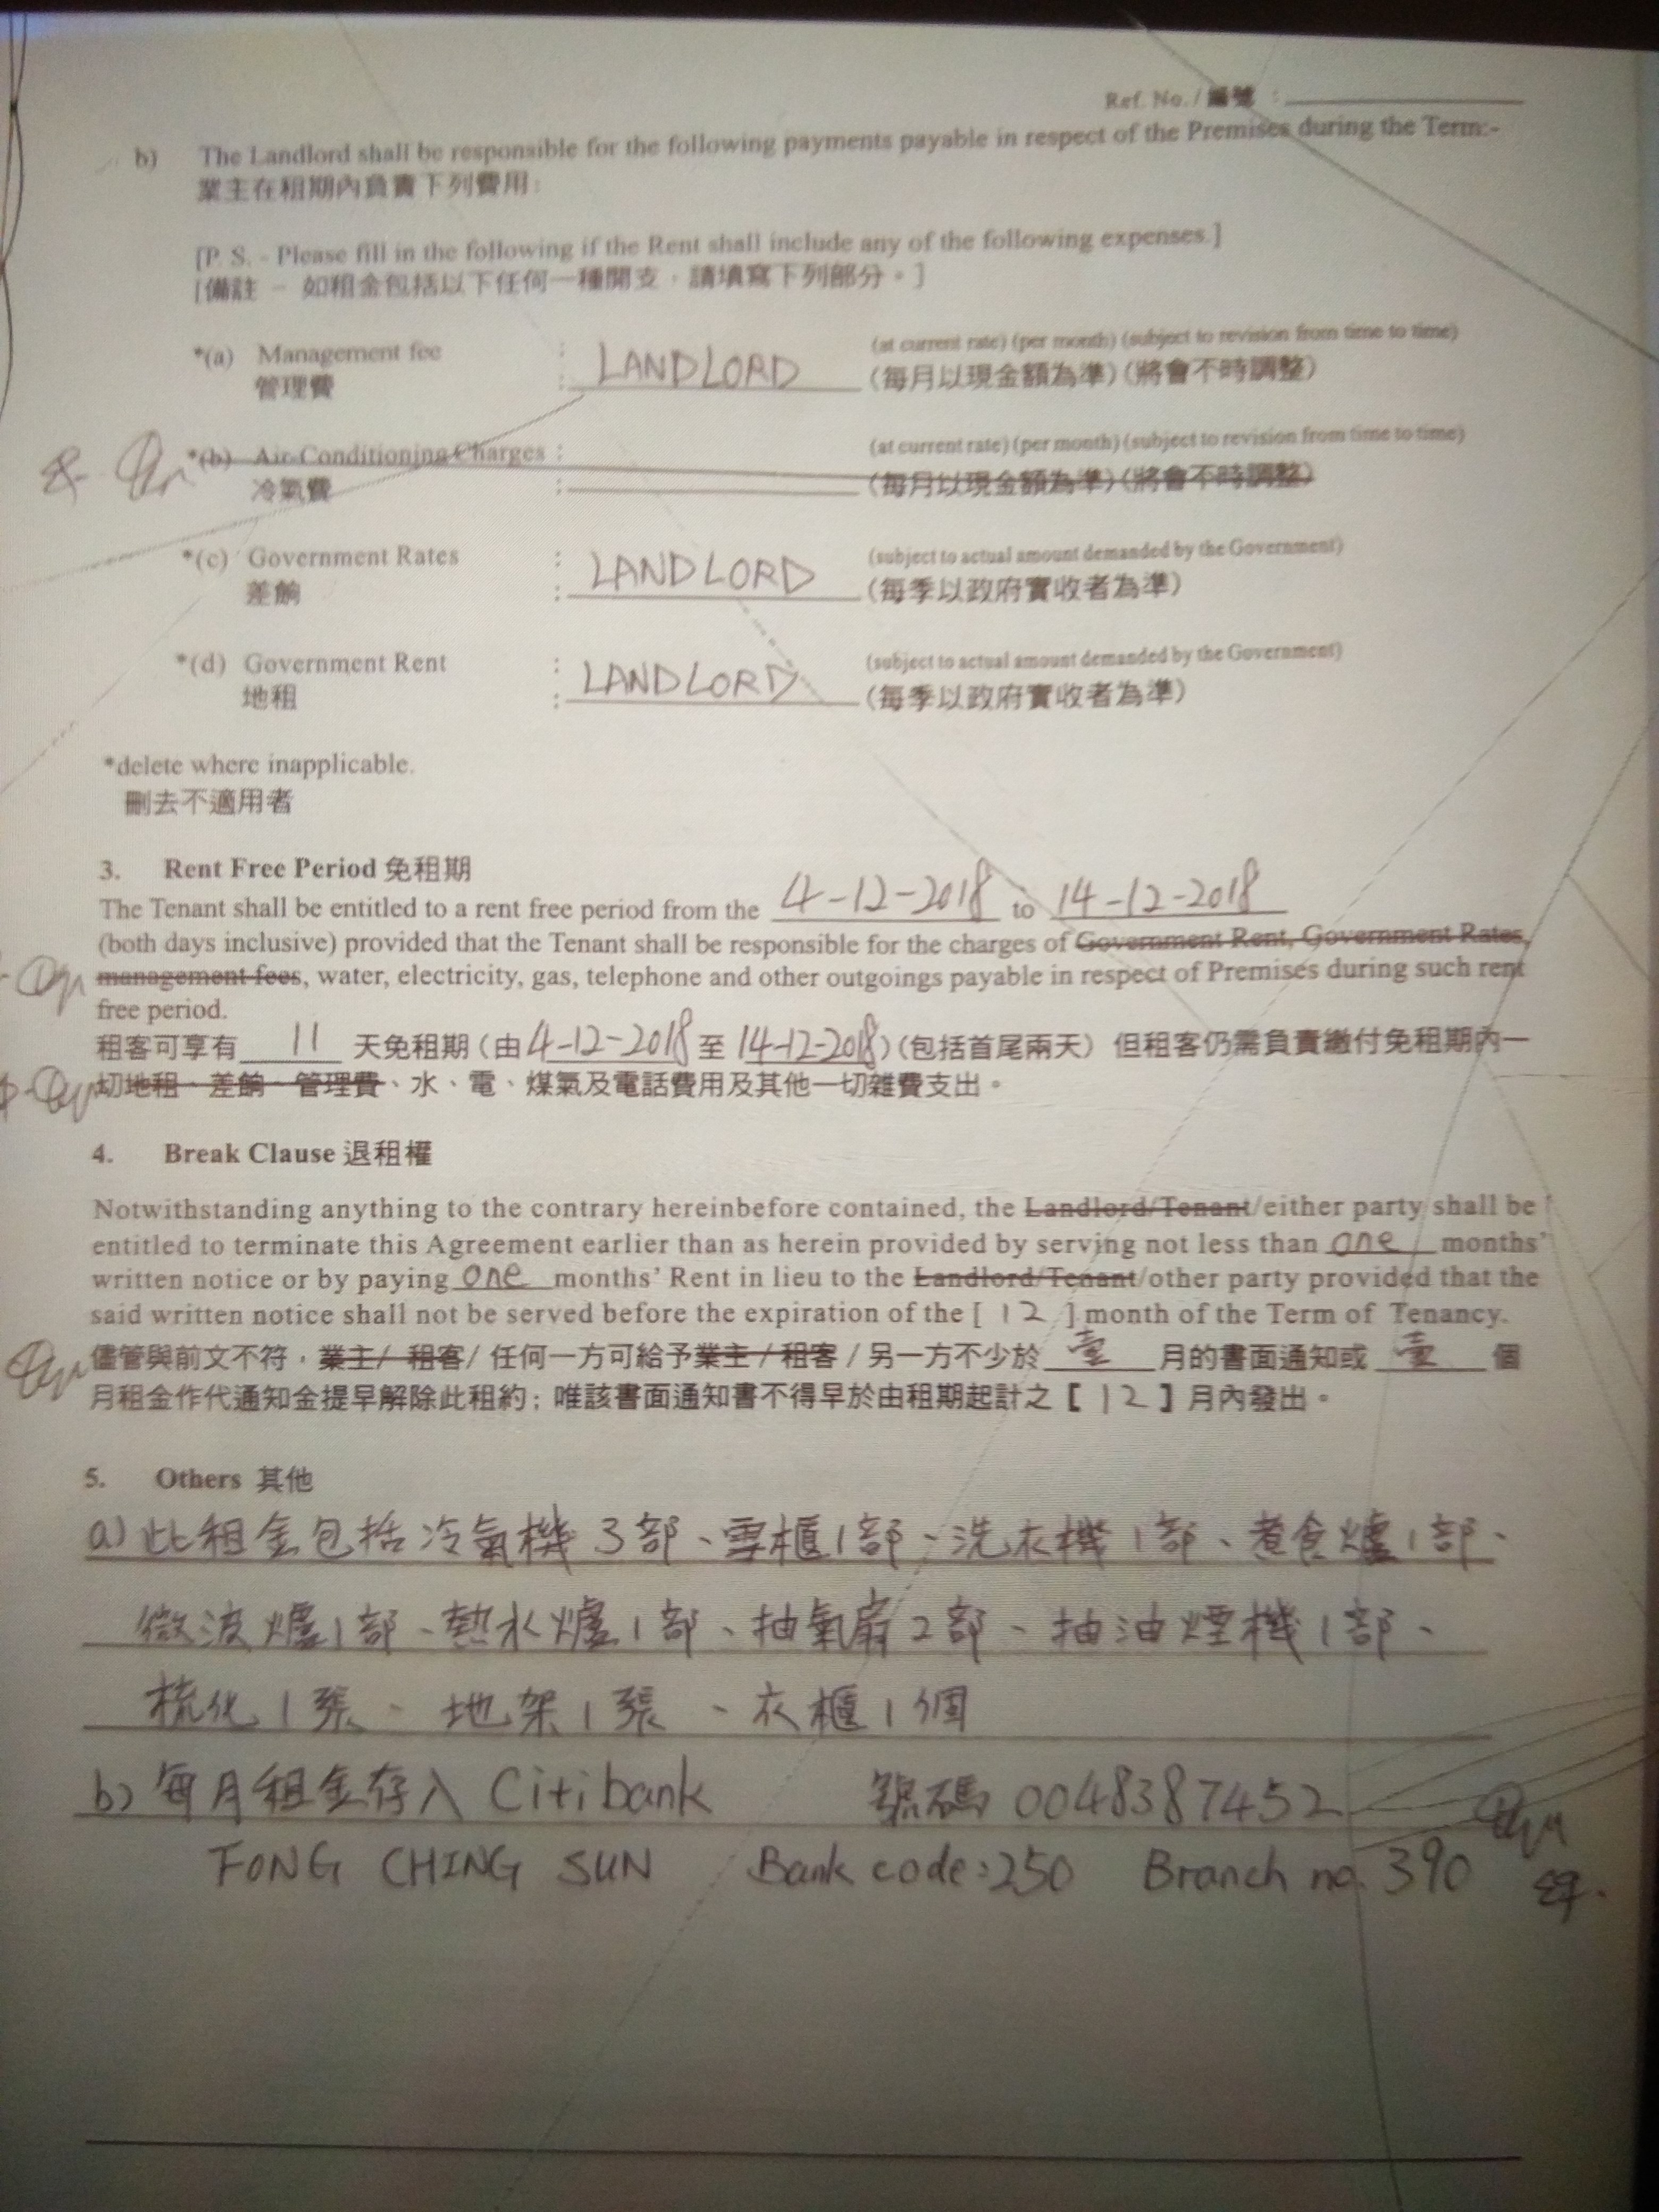 Ref. No. / 編號 :
b) The Landlord shall be responsible for the following payments payable in respect of the Premises during the Term:-
業主在租期內負責下列費用:
[P. S. - Please fill in the following if the Rent shall include any of the following expenses.]
[備註 - 如租金包括以下任何一種開支,請填寫下列部分。]
*(a) Management fee : LANDLORD (at current rate) (per month) (subject to revision from time to time)
管理費 : (每月以現金額為準)(將會不時調整)
*(b) Air-Conditioning Charges : (at current rate) (per month) (subject to revision from time to time)
冷氣費 : (每月以現金額為準)(將會不時調整)
*(c) Government Rates : LANDLORD (subject to actual amount demanded by the Government)
差餉 : (每季以政府實收者為準)
*(d) Government Rent : LANDLORD (subject to actual amount demanded by the Government)
地租 : (每季以政府實收者為準)
*delete where inapplicable.
刪去不適用者
3. Rent Free Period 免租期
The Tenant shall be entitled to a rent free period from the 4-12-2018 to 14-12-2018
(both days inclusive) provided that the Tenant shall be responsible for the charges of Government Rent, Government Rates,
management fees, water, electricity, gas, telephone and other outgoings payable in respect of Premises during such rent
free period.
租客可享有 11 天免租期(由4-12-2018至14-12-2018)(包括首尾兩天) 但租客仍需負責繳付免租期內一
切地租、差餉、管理費、水、電、煤氣及電話費用及其他一切雜費支出。
4. Break Clause 退租權
Notwithstanding anything to the contrary hereinbefore contained, the Landlord/Tenant/either party shall be
entitled to terminate this Agreement earlier than as herein provided by serving not less than one months'
written notice or by paying one months' Rent in lieu to the Landlord/Tenant/other party provided that the
said written notice shall not be served before the expiration of the [ 12 ] month of the Term of Tenancy.
儘管與前文不符,業主/ 租客/ 任何一方可給予業主 / 租客 / 另一方不少於 壹 月的書面通知或 壹 個
月租金作代通知金提早解除此租約; 唯該書面通知書不得早於由租期起計之【 12 】月內發出。
5. Others 其他
a) 此租金包括冷氣機3部、雪櫃1部、洗衣機1部、煮食爐1部、
微波爐1部、熱水爐1部、抽氣扇2部、抽油煙機1部、
梳化1張、地架1張、衣櫃1個
b) 每月租金存入 Citibank 號碼 0048387452
FONG CHING SUN Bank code:250 Branch no. 390